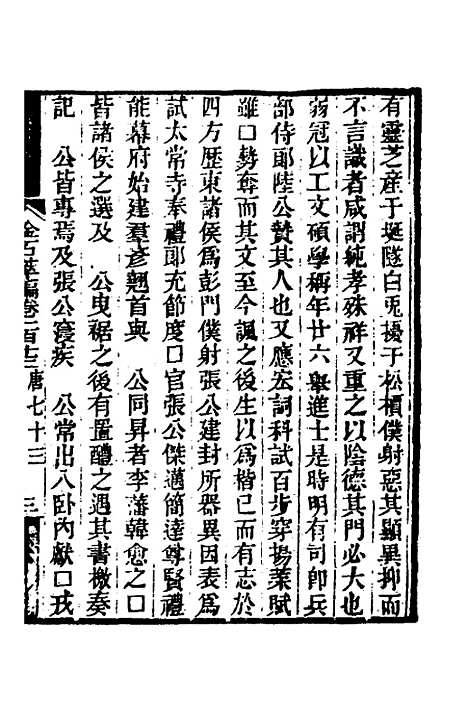 有靈芝産于埏隧白兎擾于松檟僕射惡其顯異抑而
不言識者咸謂純孝殊祥又重之以陰德其門必大也
弱冠以工文碩學稱年廿六舉進士是時明有司卽兵
部侍郎陸公贄其人也又應宏詞科試百步穿揚葉賦
雖口勢奪而其文至今諷之後生以爲楷已而有志於
四方歷東諸侯爲彭門僕射張公建封所器異因表爲
試太常寺奉禮郎充節度口官張公傑邁簡達尊賢禮
能幕府始建羣彥翹首與　公同昇者李藩韓愈之口
皆諸侯之選及　公曳裾之後有置醴之遇其書檄奏
記　公皆專焉及張公寢疾　公常出入卧內獻口戎
金石萃編卷一百十三唐七十三　三